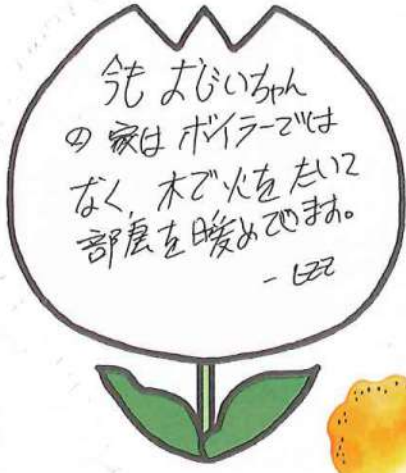 今も おじいちゃん
の 家は ボイラーでは
なく、木で火をたいて
部屋を暖めてます。